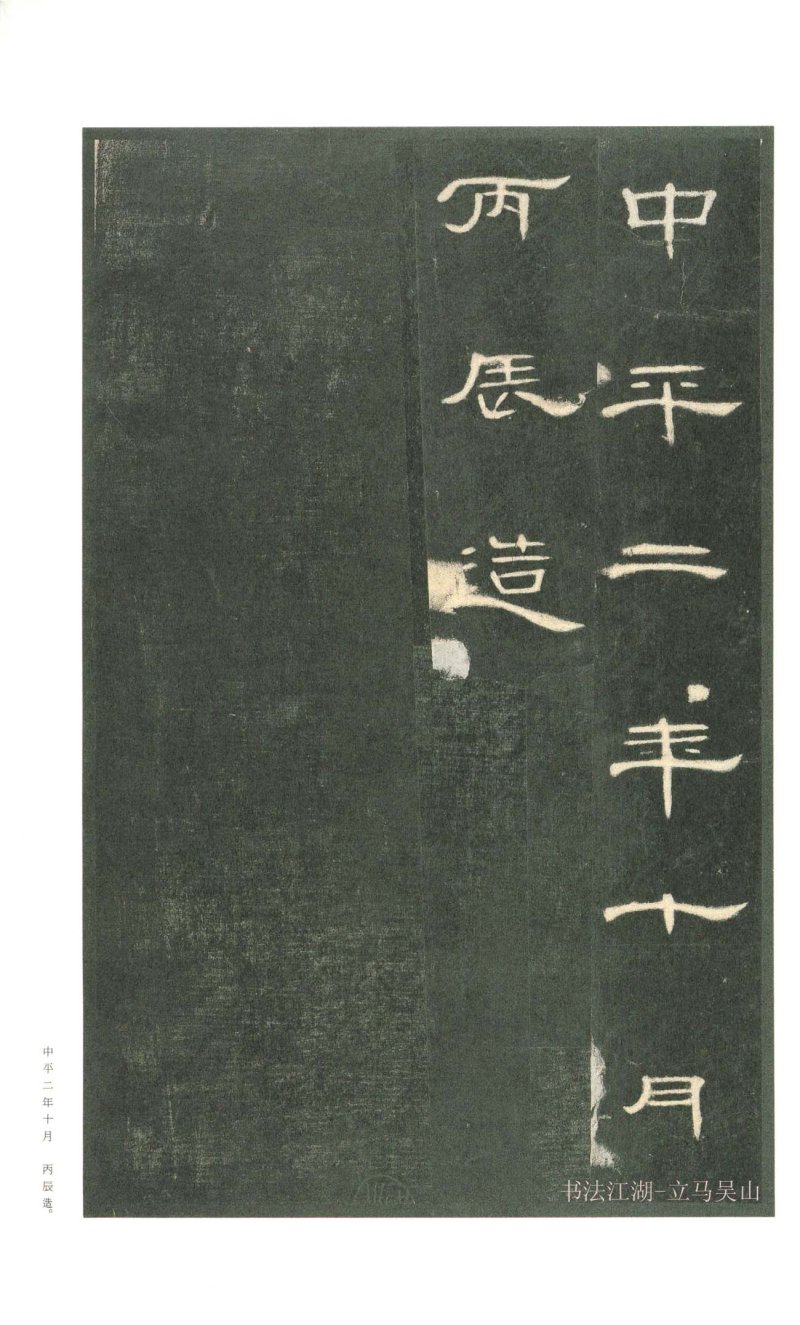 中平二年十月
丙辰造
中平二年十月 丙辰造。
书法江湖-立马吴山